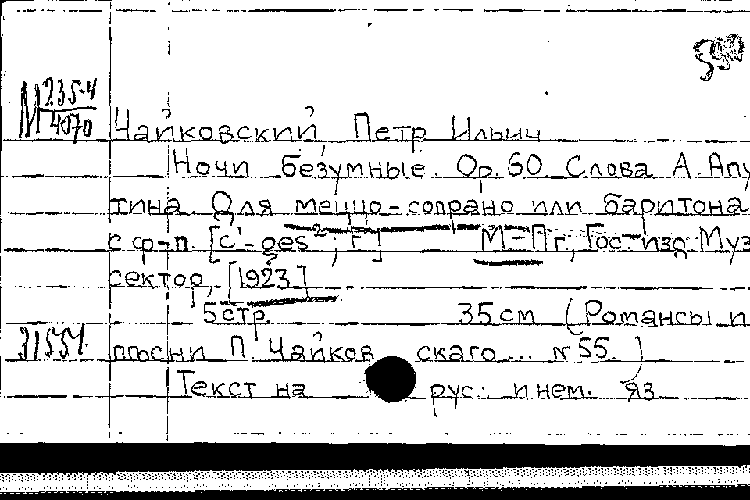 М 235-4
4070
Чайковский, Петр Ильич
Ночи безумные. Op. 60 Слова А. Апу
тина. Для меццо-сопрано или баритона
с ф-п. [c'-ges²; F] М-Пг, Гос. изд. Муз
сектор, [1923]
5 стр. 35 см (Романсы и
31551 песни П. Чайков скаго... N 55.)
Текст на рус. и нем. яз